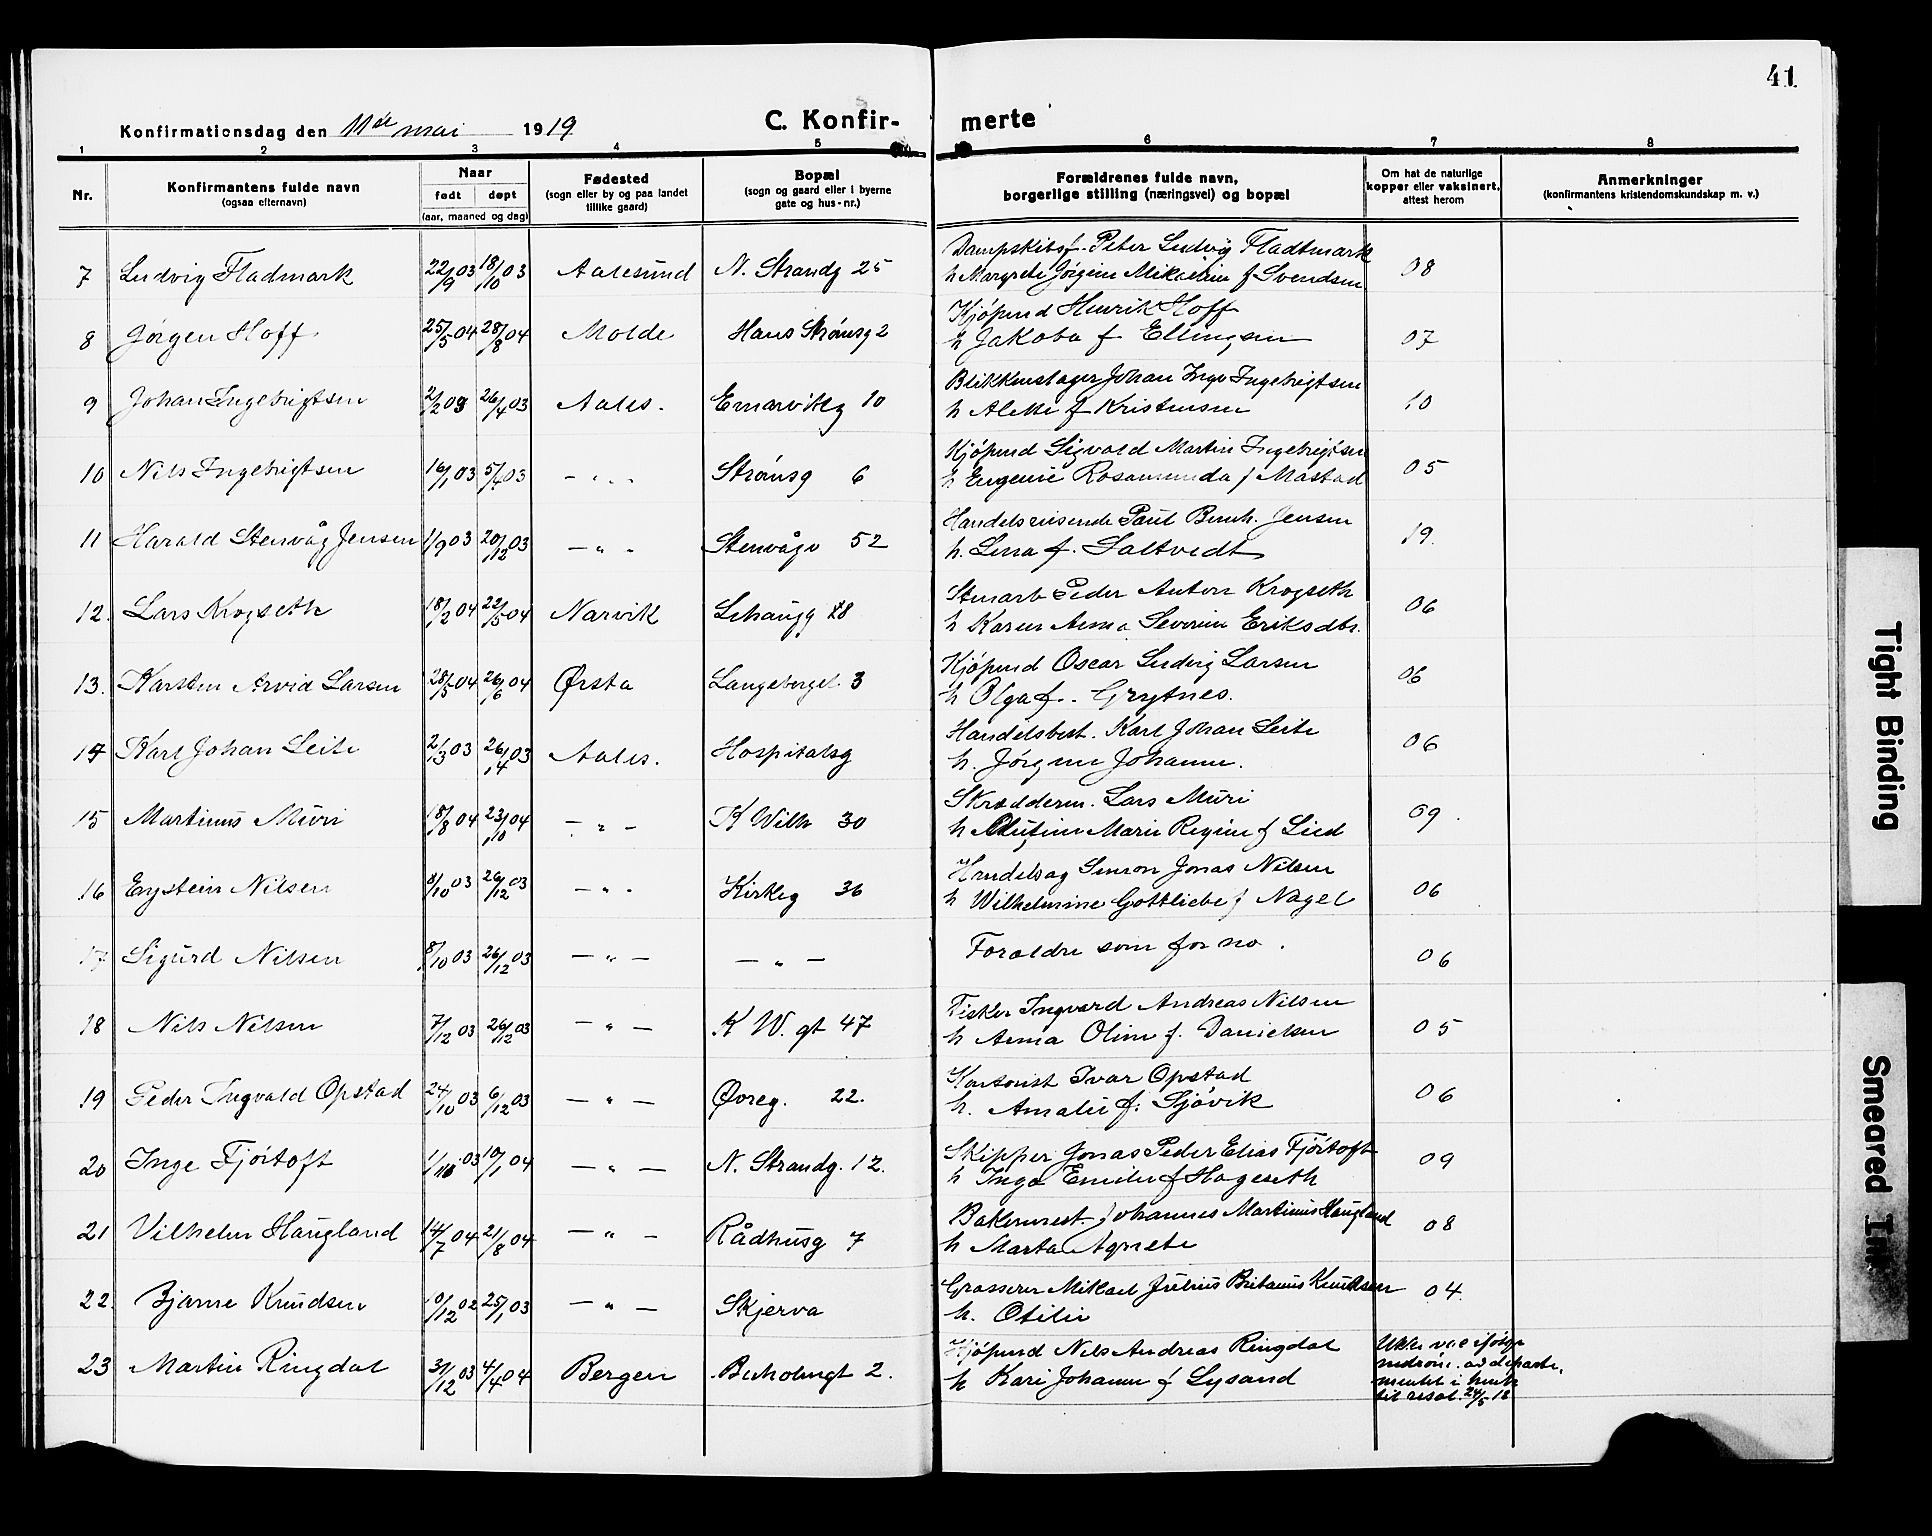 41
Konfirmationsdag den 11de mai 1919 C. Konfirmerte
1 2 3 4 5 6 7 8
Nr. Konfirmantens fulde navn (ogsaa efternavn) Naar født døpt (aar, maaned og dag) Fødested (sogn eller by og paa landet tillike gaard) Bopæl (sogn og gaard eller i byerne gate og hus-nr.) Forældrenes fulde navn, borgerlige stilling (næringsvei) og bopæl Om hat de naturlige kopper eller vaksinert, attest herom Anmerkninger (konfirmantens kristendomskundskap m. v.)
7 Ludvig Fladmark 22/9 03 18/10 03 Aalesund N. Strandg 25 Dampskibsf. Peter Ludvig Fladtmark 08
h Margrete Jørgine Mikaeline f Svendsen
8 Jørgen Hoff 25/5 04 28/8 04 Molde Hans Strømsg 2 Kjøpmd Henrik Hoff 07
h Jakoba f Ellingsen
9 Johan Ingebrigtsen 2/2 03 26/4 03 Aales. 10 Blikkenslager Johan Inge Ingebrigtsen 10
h Alette f Kristensen
10 Nils Ingebrigtsen 16/1 03 5/4 03 - " - Strømsg 6 Kjøpmd Sigvald Martin Ingebrigtsen 05
h Eugenie Rosamunda f Mastad
11 Harald Stenvåg Jensen 1/9 03 20/12 03 - " - Stenvågv 52 Handelsreisende Paul Bernh. Jensen 19.
h. Lena f. Saltvedt
12. Lars Krogseth 18/2 04 22/5 04 Narvik 18 Stenarb Peder Anton Krogseth 06
h Karen Anna Severine Eriksdtr.
13. Karsten Arvid Larsen 28/5 04 26/6 04 Ørsta Langeberget 3 Kjøpmd Oscar Ludvig Larsen 06
h Olga f. Grytnes.
14 Karl Johan Leite 2/3 03 26/14 03 Aales. Hospitalsg Handelsbest. Karl Johan Leite 06
h. Jørgine Johanne.
15 Martinus Muri 18/8 04 23/10 04 - " - K Wilh 30 Skrædderm. Lars Muri 09.
h Marie Regine f Lied
16 Eystein Nilsen 8/10 03 26/12 03 - " - Kirkeg 36 Handelsag Simon Jonas Nilsen 06
h Wilhelmine Gottliebe f Nagel
17 Sigurd Nilsen 8/10 03 26/12 03 - " - - " - Foreldre som for no . 06
18 Nils Nilsen 7/12 03 26/12 03 - " - K W. gt 47 Fisker Ingvard Andreas Nilsen 05
h Anna Oline f. Danielsen
19 Peder Ingvald Opstad 24/10 03 6/12 03 - " - Øvreg. 22. Kontorist Ivar Opstad 06
h. Amalie f. Sjøvik
20 Inge Fjørtoft 1/10 03 10/1 04 - " - N. Strandg. 12. Skipper Jonas Peder Elias Fjørtoft 09
h Inga Emilie f Hageseth
21 Vilhelm Haugland 14/7 04 21/8 04 - " - Rådhusg 7 Bakermest. Johannes Martinus Haugland 08
h Marta Agnete
22. Bjarne Knudsen 10/12 02 25/1 03 - " - Skjerva Grosserer Mikael Julius Britanus Knudsen 04.
h. Otilie
23 Martin Ringdal 31/12 03 4/4 04 Bergen Buholmgt 2. Kjøpmd Nils Andreas Ringdal Ikke vac ifølge
h Kari Johanne f Lysand av departementet i henh
til resol. 24/5 18
Tight Binding
Smeared Ink